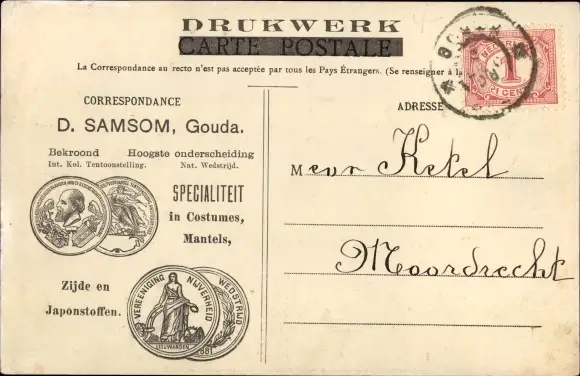 DRUKWERK
CARTE POSTALE
La Correspondance au recto n'est pas acceptée par tous les Pays Étrangers. (Se renseigner à la
CORRESPONDANCE
ADRESSE
D. SAMSOM, Gouda.
Bekroond Hoogste onderscheiding
Int. Kol. Tentoonstelling. Nat. Wedstrijd.
SPECIALITEIT
in Costumes,
Mantels,
Zijde en
Japonstoffen.
VEREENIGING NIJVERHEID
LEEUWARDEN
WEDSTRIJD
Mevr Ketel
Moordrecht
1
CENT